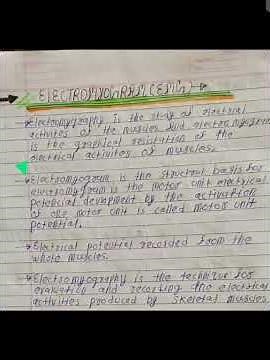 ELECTROMYOGRAPHY (EMG)
* Electromyography is the study of electrical
activites of the muscles and electromyogram
is the graphical
electrical activites of muscles.
* Electromyogram is the structural basis for
electromyogram is the motor unit electrical
potencial development by the activation
of one motor unit is called motor unit
potential.
* Electrical potential recorded from the
whole muscles.
* Electromyography is the technique for
evaluation and recording the electrical
activities produced by skeletal muscles